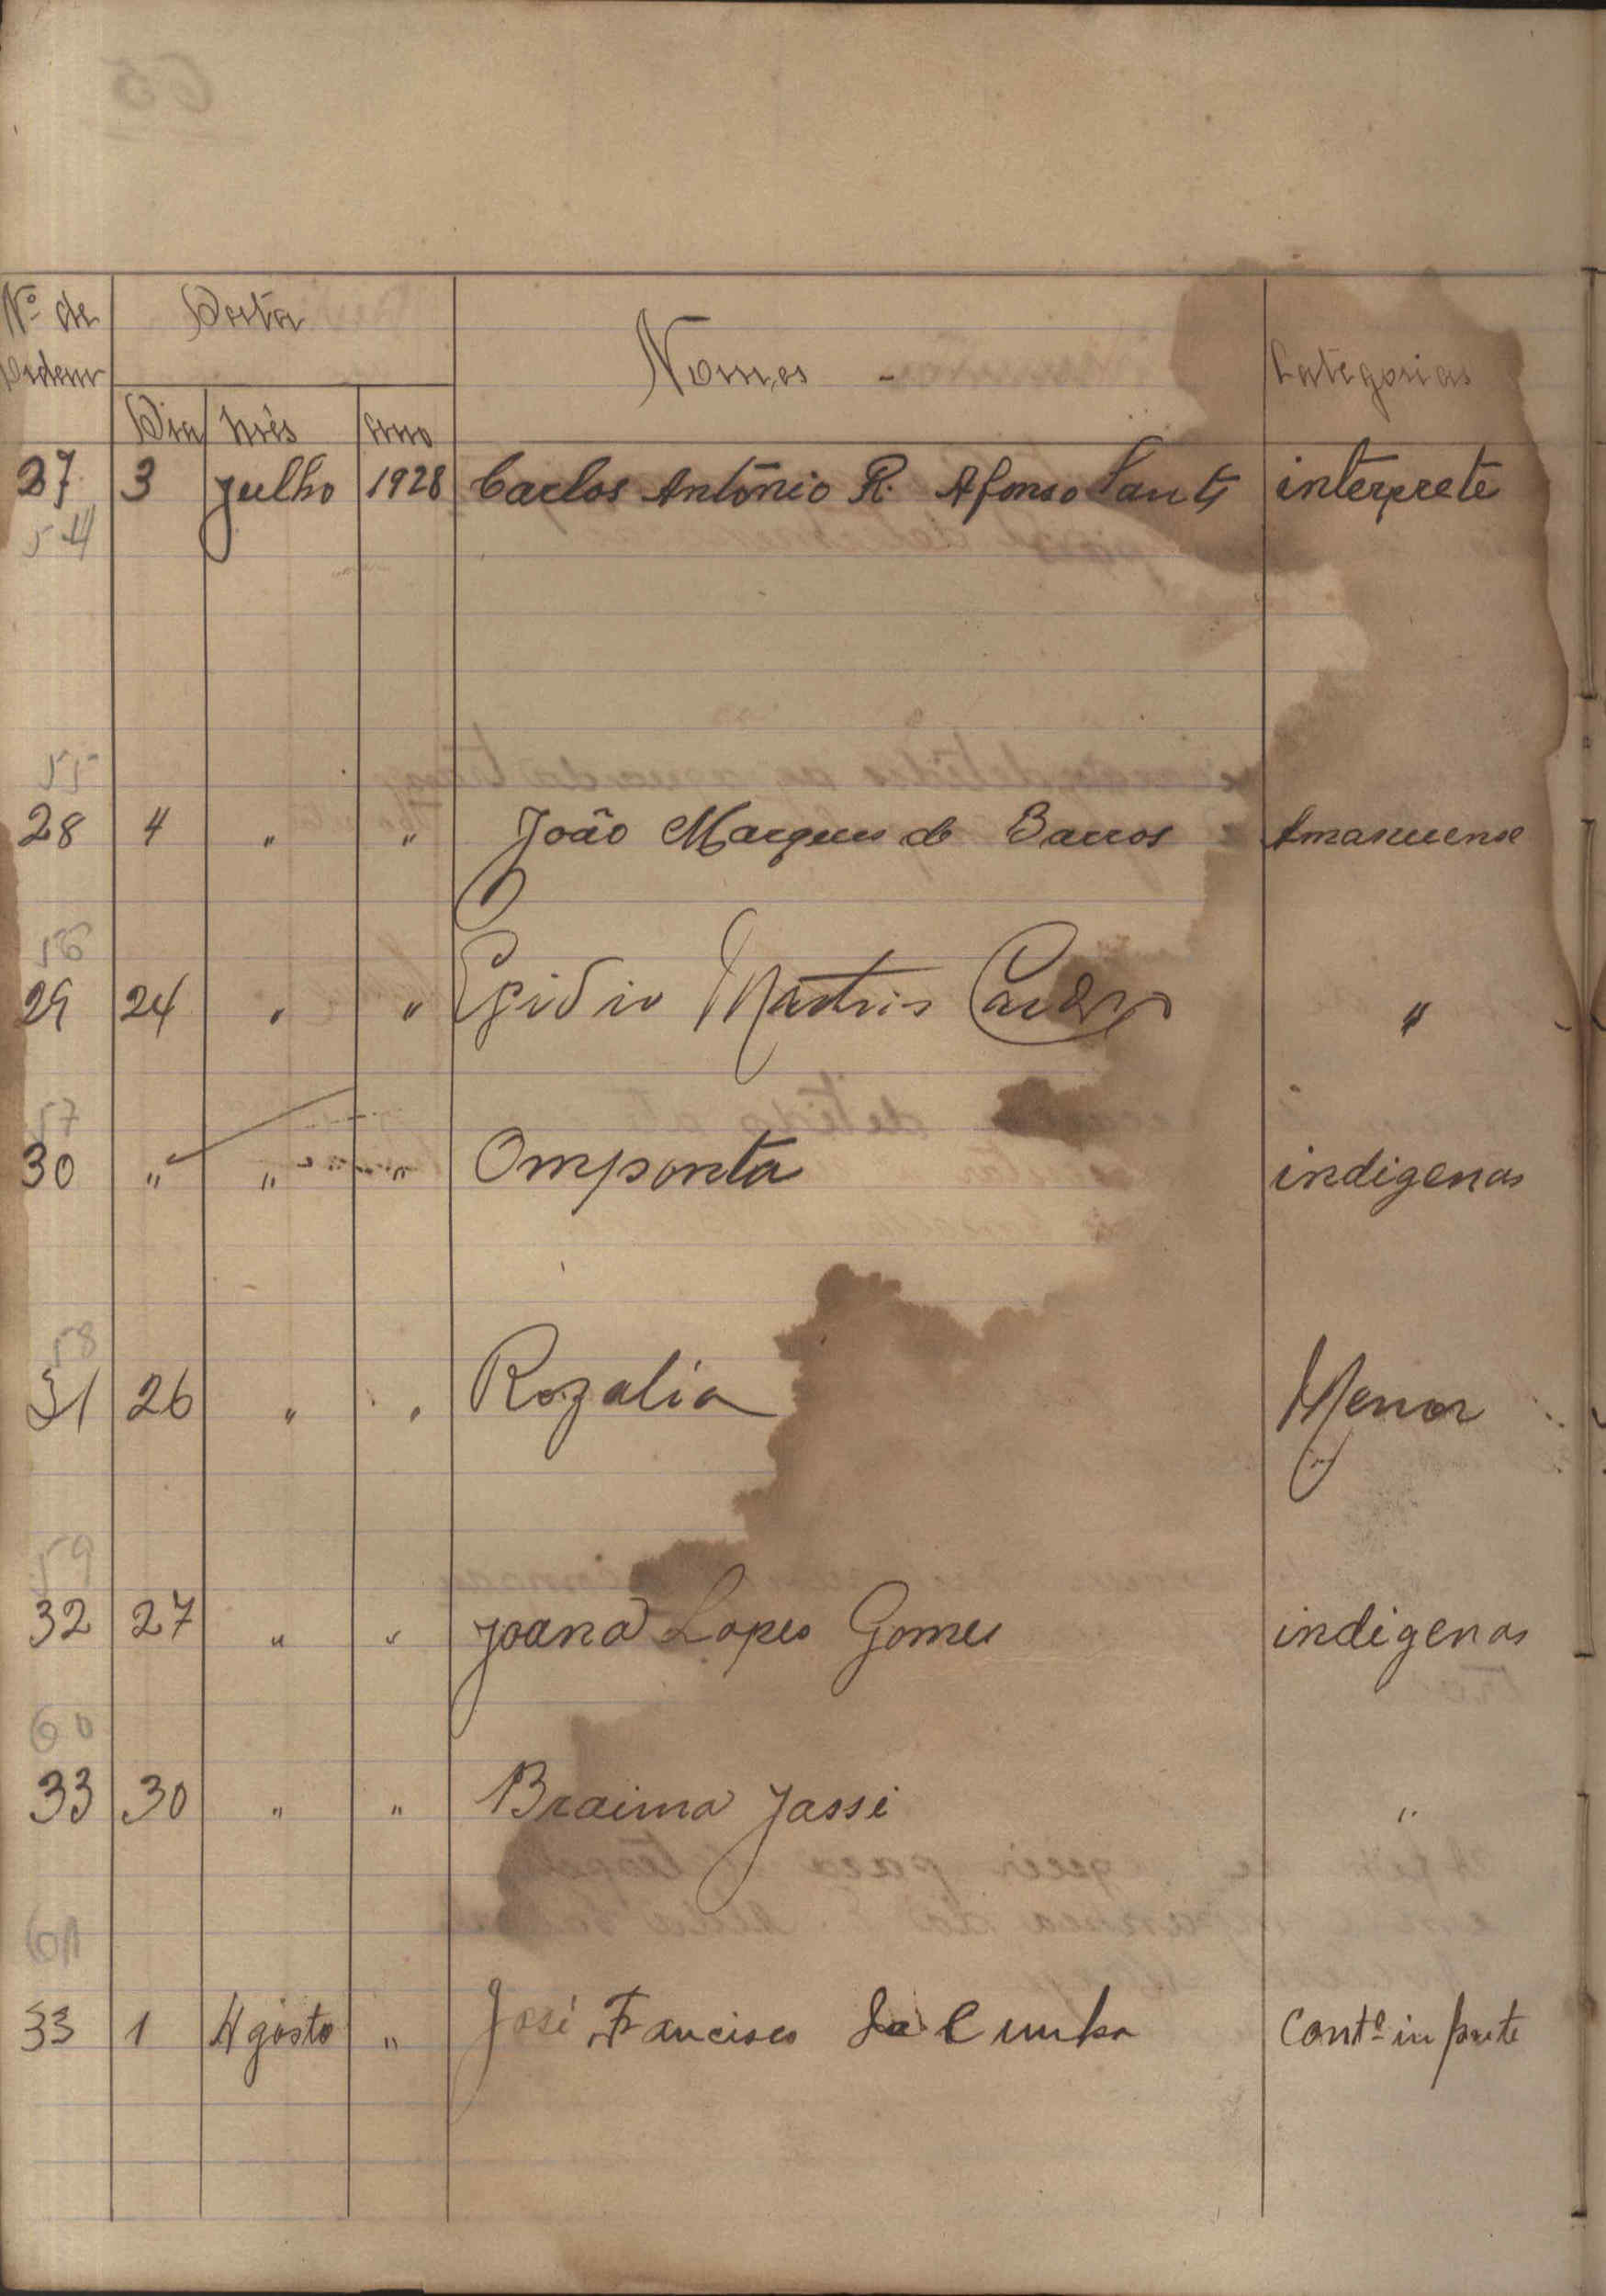 Nº de Ordem Data Nomes - Categorias
Dia Mês Ano
27 3 Julho 1928 Carlos António R. Afonso Santos interprete
54
55
28 4 " " João Marques de Barros Amanuense
56
29 24 " " Egidio Martins Cardozo "
57
30 " " " Omponta indigenas
58
31 26 " " Rozalia Menor
59
32 27 " " Joana Lopes Gomes indigenas
60
33 30 " " Braima Jassi "
61
33 1 Agosto " José Francisco da Cunha